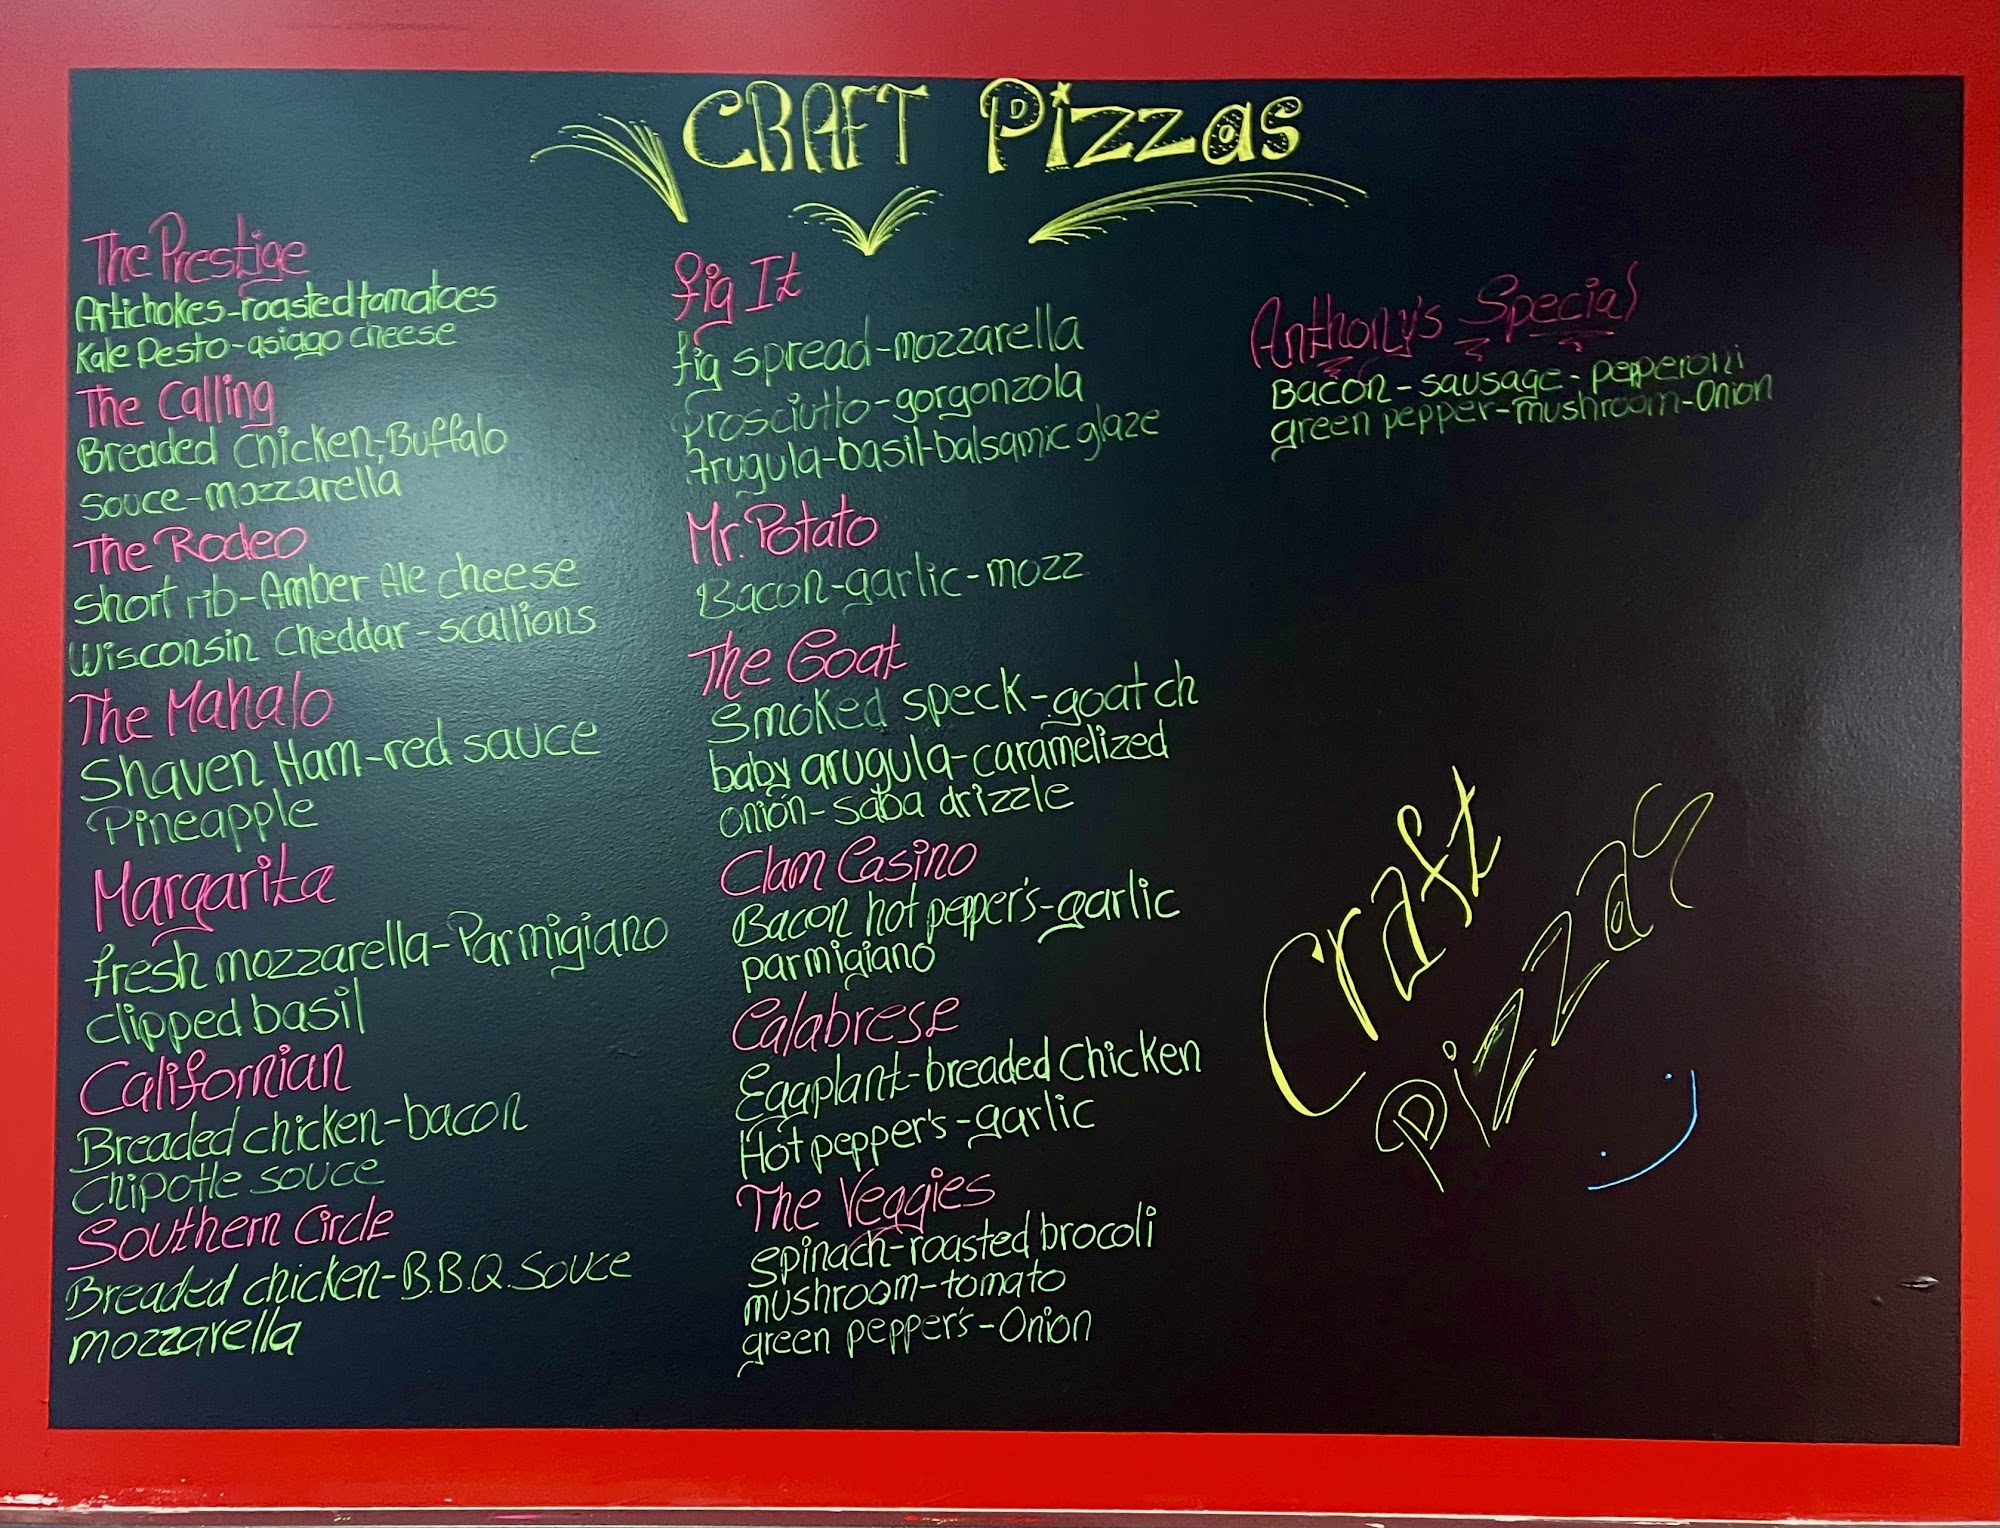 CRAFT Pizzas
The Prestige
Artichokes-roasted tomatoes
Kale Pesto-asiago cheese
The Calling
Breaded Chicken, Buffalo
Souce-mozzarella
The Rodeo
Short rib-Amber Ale cheese
Wisconsin Cheddar-scallions
The Mahalo
Shaven Ham-red sauce
Pineapple
Margarita
fresh mozzarella-Parmigiano
Clipped basil
Californian
Breaded chicken-bacon
Chipotle souce
Southern Circle
Breaded chicken-B.B.Q. Souce
mozzarella
fig It
fig spread-mozzarella
Prosciutto-gorgonzola
Arugula-basil-balsamic glaze
Mr. Potato
Bacon-garlic-mozz
The Goat
Smoked speck-goat ch
baby arugula-caramelized
onion-saba drizzle
Clam Casino
Bacon hot pepper's-garlic
parmigiano
Calabrese
Eggplant-breaded Chicken
Hot pepper's-garlic
The Veggies
spinach-roasted brocoli
mushroom-tomato
green pepper's-Onion
Anthony's Special
Bacon-sausage-pepperoni
green pepper-mushroom-Onion
Craft
Pizzas